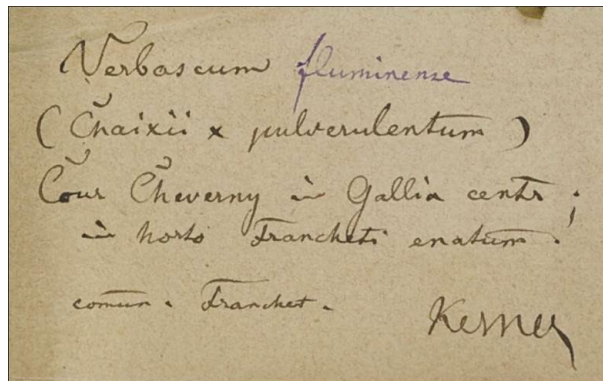 Verbascum fluminense
(Chaixii x pulverulentum)
Cour Cheverny in Gallia centr;
in horto Francheti enatum.
comun. Franchet.
Kerner